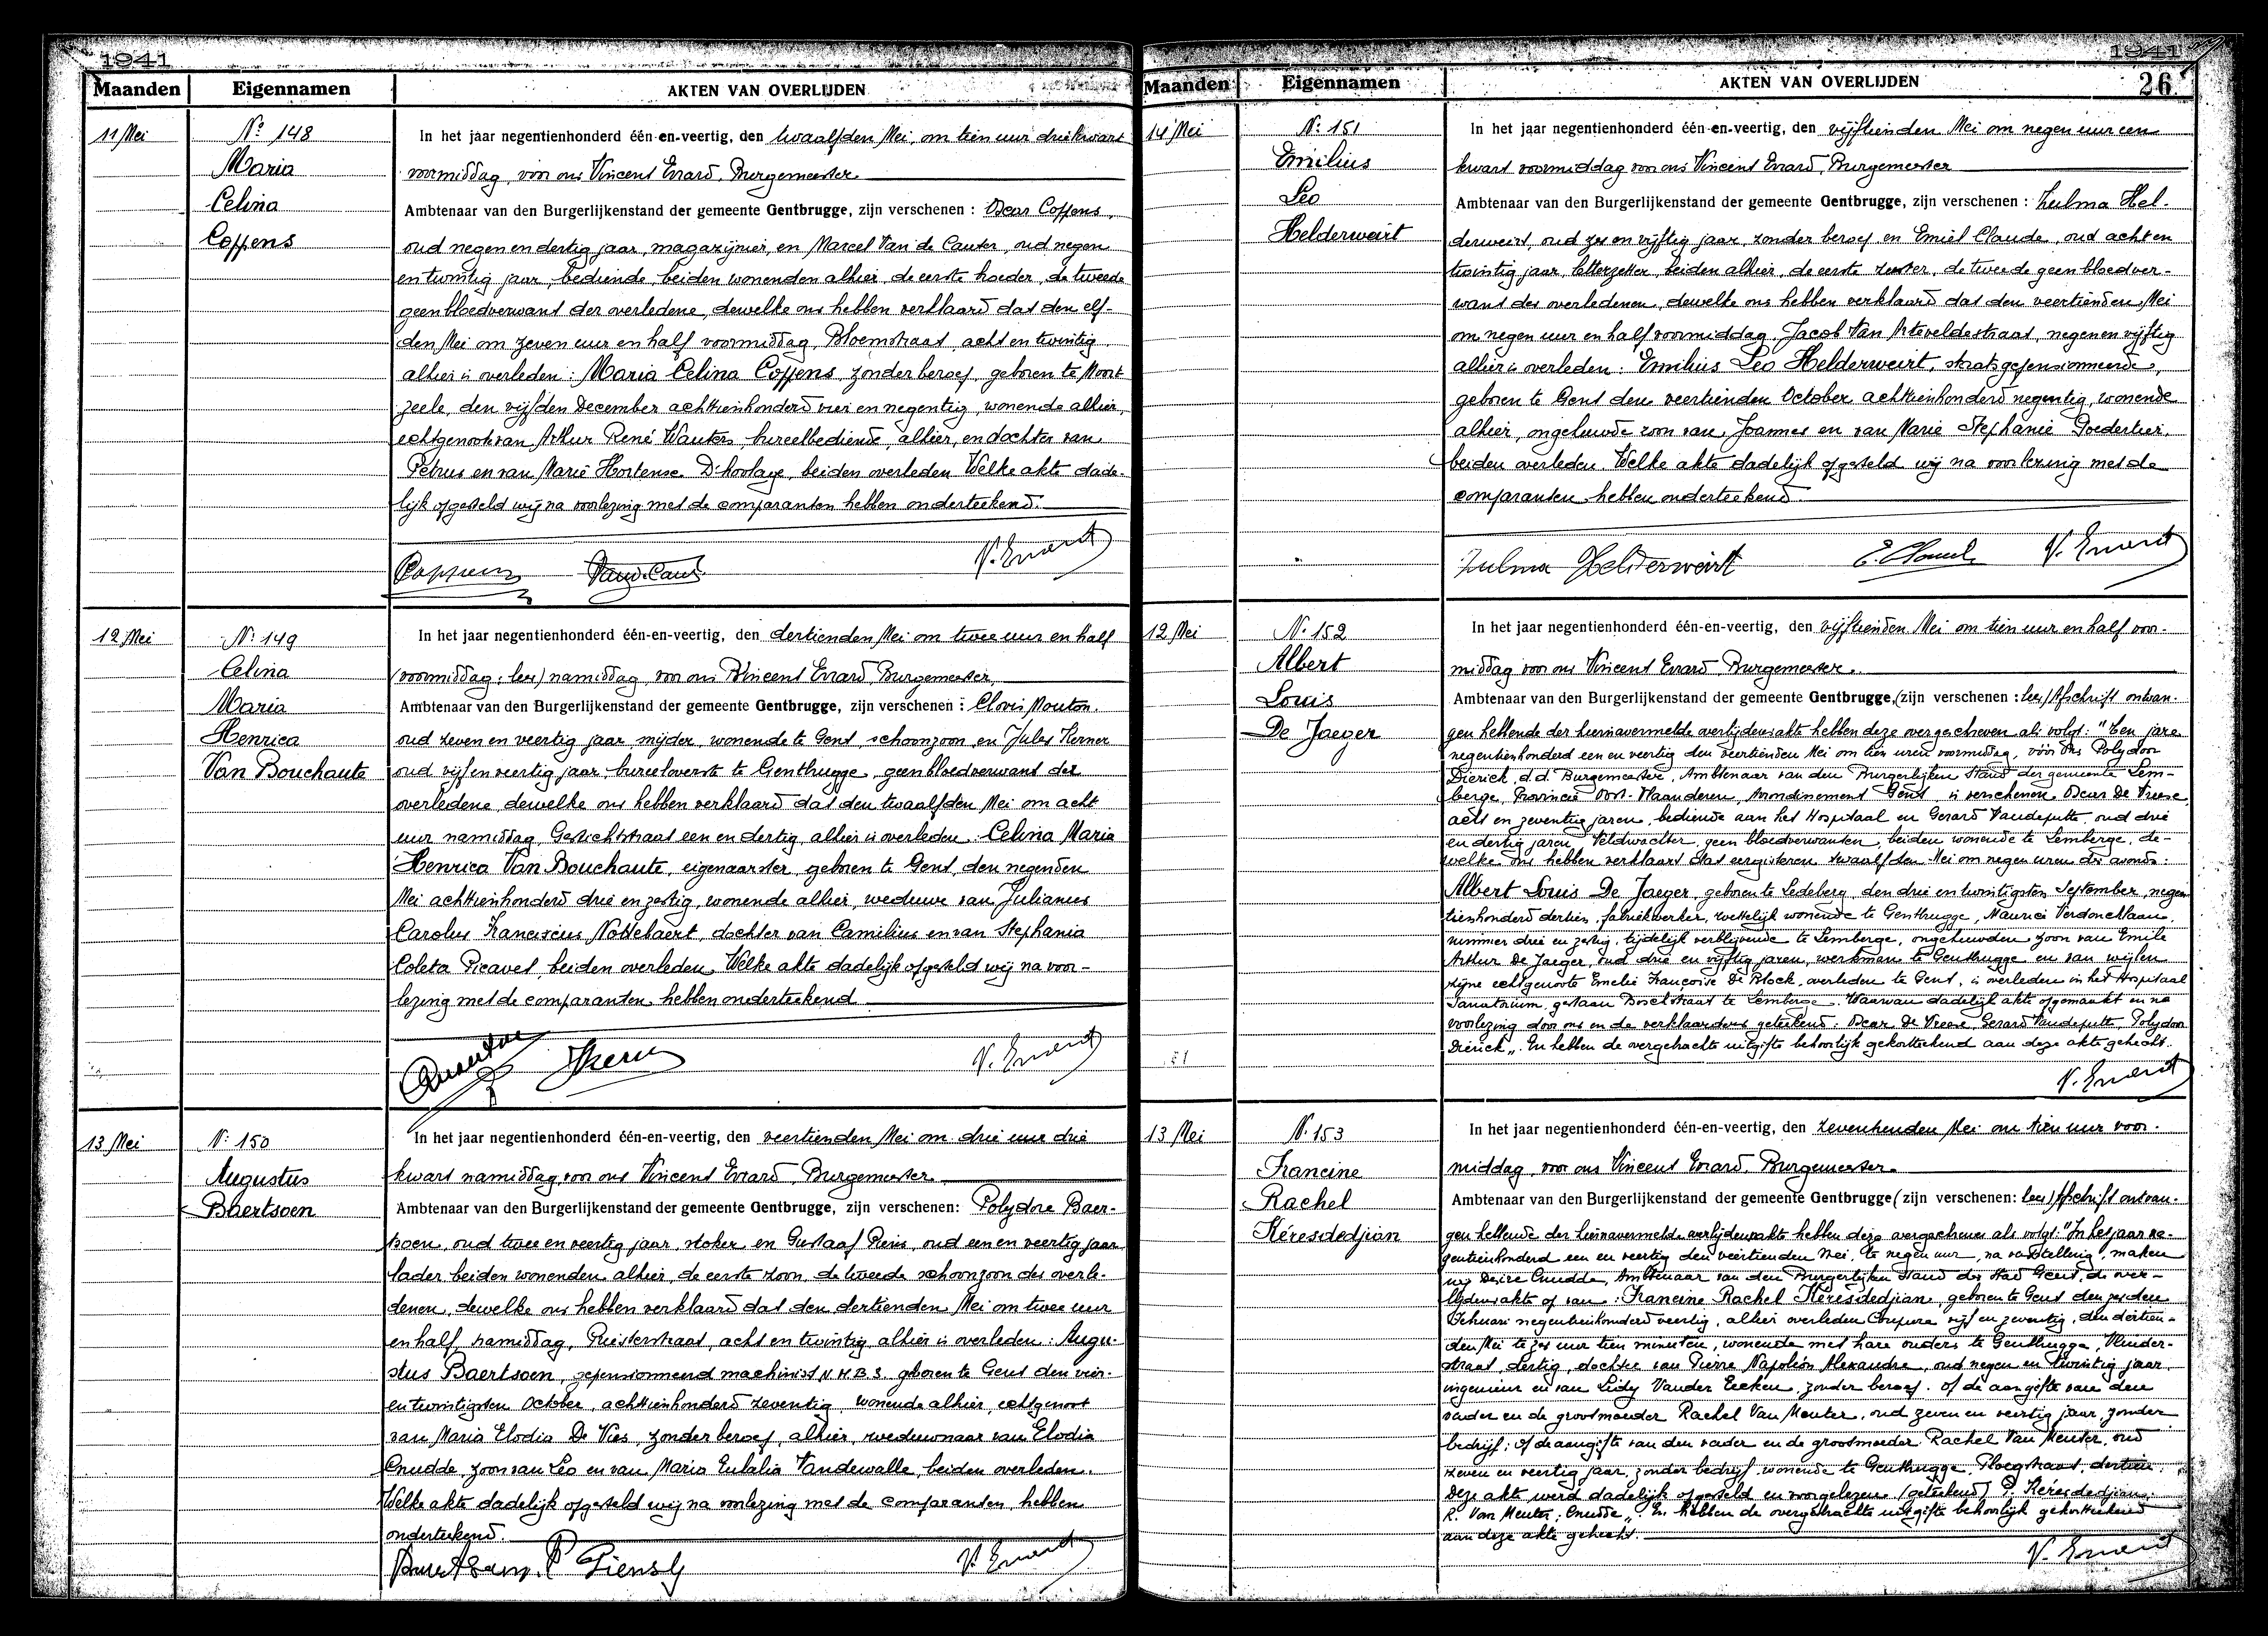 1941
Maanden Eigennamen AKTEN VAN OVERLIJDEN
11 Mei
No 148
Maria
Celina
Coppens
In het jaar negentienhonderd één-en-veertig, den twaalfden Mei om tien uur drie kwart
voormiddag, voor ons Vincent Evrard, Burgemeester
Ambtenaar van den Burgerlijkenstand der gemeente Gentbrugge, zijn verschenen : Oscar Coppens,
oud negen en dertig jaar, magazijnier, en Marcel Van de Cauter, oud negen
en twintig jaar, bediende, beiden wonenden alhier, de eerste broeder, de tweede
geen bloedverwant der overledene, dewelke ons hebben verklaard dat den elf-
den Mei om zeven uur en half voormiddag, Bloemstraat, acht en twintig
alhier is overleden : Maria Celina Coppens, zonder beroep, geboren te Moort
zeele, den vijfden December achttienhonderd vier en negentig, wonende alhier,
echtgenoote van Arthur René Wauters, bureelbediende, alhier, en dochter van
Petrus en van Marie Hortense D'hoolage, beiden overleden. Welke akte dade-
lijk opgesteld wij na voorlezing met de comparanten hebben onderteekend.
Coppens V. Evrard
12 Mei
N: 149
Celina
Maria
Henrica
Van Bouchaute
In het jaar negentienhonderd één-en-veertig, den dertienden Mei om twee uur en half
(voormiddag : lees) namiddag, voor ons Vincent Evrard, Burgemeester,
Ambtenaar van den Burgerlijkenstand der gemeente Gentbrugge, zijn verschenen : Clovis Mouton,
oud zeven en veertig jaar, snijder, wonende te Gent, schoonzoon en Jules Kerner
oud vijf en veertig jaar, bureeloverste te Gentbrugge, geen bloedverwant der
overledene, dewelke ons hebben verklaard dat den twaalfden Mei om acht
uur namiddag, Gestichtstraat een en dertig, alhier is overleden : Celina Maria
Henrica Van Bouchaute, eigenaarster, geboren te Gent, den negenden
Mei achttienhonderd drie en zestig, wonende alhier, weduwe van Julianus
Carolus Franciscus Nobbelaert, dochter van Camilius en van Stephania
Coleta Picavet, beiden overleden. Welke akte dadelijk opgesteld wij na voor-
lezing met de comparanten hebben onderteekend
V. Evrard
13 Mei
N: 150
Augustus
Baertsoen
In het jaar negentienhonderd één-en-veertig, den veertienden Mei om drie uur drie
kwart namiddag voor ons Vincent Evrard, Burgemeester
Ambtenaar van den Burgerlijkenstand der gemeente Gentbrugge, zijn verschenen: Polydore Baer-
tsoen, oud twee en veertig jaar, stoker en Gustaaf Piens, oud een en veertig jaar
lader, beiden wonenden alhier, de eerste zoon, de tweede schoonzoon des overle-
denen, dewelke ons hebben verklaard dat den dertienden Mei om twee uur
en half namiddag, Priesterstraat, acht en twintig alhier is overleden : Augu-
stus Baertsoen, gepensionneerd machinist N.M.B.S. geboren te Gent den vier-
en twintigsten October, achttienhonderd zeventig, wonende alhier, echtgenoot
van Maria Elodia De Vies, zonder beroep, alhier, weduwnaar van Elodia
Cnudde, zoon van Leo en van Maria Eulalia Vandewalle, beiden overleden.
Welke akte dadelijk opgesteld wij na voorlezing met de comparanten hebben
onderteekend.
Baertsoen. P Piens G V. Evrard
1941
26
Maanden Eigennamen AKTEN VAN OVERLIJDEN
14 Mei
N: 151
Emilius
Leo
Helderweirt
In het jaar negentienhonderd één-en-veertig, den vijftienden Mei om negen uur een
kwart voormiddag voor ons Vincent Evrard, Burgemeester
Ambtenaar van den Burgerlijkenstand der gemeente Gentbrugge, zijn verschenen : Zulma Hel-
derweirt, oud zes en vijftig jaar, zonder beroep en Emiel Claude, oud acht en
twintig jaar, letterzetter, beiden alhier, de eerste zuster, de tweede geen bloedver-
want des overledenen, dewelke ons hebben verklaard dat den veertienden Mei
om negen uur en half voormiddag, Jacob Van Arteveldestraat, negen en vijftig
alhier is overleden : Emilius Leo Helderweirt, staatsgepensionneerde,
geboren te Gent den veertienden October achttienhonderd negentig, wonende
alhier, ongehuwde zoon van Joannes en van Marie Stephanie Goedertier,
beiden overleden. Welke akte dadelijk opgesteld wij na voorlezing met de
comparanten hebben onderteekend.
Zulma Helderweirt V. Evrard
12 Mei
N: 152
Albert
Louis
De Jaeger
In het jaar negentienhonderd één-en-veertig, den vijftienden Mei om tien uur en half voor-
middag voor ons Vincent Evrard, Burgemeester.
Ambtenaar van den Burgerlijkenstand der gemeente Gentbrugge, (zijn verschenen : lees) Afschrift ontvan-
gen hebbende der hiernavermelde overlijdensakte hebben deze overgeschreven als volgt : "Ten jare
negentienhonderd een en veertig den veertienden Mei om tien uren voormiddag, vóór Ons Polydoor
Dierick, d.d. Burgemeester, Ambtenaar van den Burgerlijken Stand der gemeente Lem-
berge, Provincie Oost-Vlaanderen, Arrondissement Gent, is verschenen Oscar De Vreese,
acht en zeventig jaren, bediende aan het Hospitaal en Gerard Vandeputte, oud drie
en dertig jaren, Veldwachter, geen bloedverwanten, beiden wonende te Lemberge, de-
welke ons hebben verklaard dat eergisteren twaalfden Mei om negen uren des avonds :
Albert Louis De Jaeger, geboren te Ledeberg, den drie en twintigsten September negen
tienhonderd dertien, fabriekwerker, wettelijk wonende te Gentbrugge, Maurice Verdoncklaan,
nummer drie en zestig, tijdelijk verblijvende te Lemberge, ongehuwden zoon van Emile
Arthur De Jaeger, oud drie en vijftig jaren, werkman te Gentbrugge en van wijlen
zijne echtgenoote Emelie Françoise De Block, overleden te Gent, is overleden in het Hospitaal
Sanatorium, gestaan Boschstraat te Lemberge. Waarvan dadelijk akte opgemaakt en na
voorlezing door ons en de verklaardens geteekend : Oscar De Vreese, Gerard Vandeputte, Polydoor
Dierick". En hebben de overgebrachte uitgifte behoorlijk gekortteekend aan deze akte gehecht.
V. Evrard
13 Mei
N. 153
Francine
Rachel
Kéresdedjian
In het jaar negentienhonderd één-en-veertig, den zeventienden Mei om tien uur voor-
middag, voor ons Vincent Evrard, Burgemeester.
Ambtenaar van den Burgerlijkenstand der gemeente Gentbrugge (zijn verschenen: lees) Afschrift ontvan-
gen hebbende der hiernavermelde overlijdensakte hebben deze overgeschreven als volgt : "In het jaar ne-
gentienhonderd een en veertig den veertienden Mei, te negen uur, na vaststelling, maken
wij Desire Cnudde, Ambtenaar van den Burgerlijken Stand der Stad Gent, de over-
lijdensakte op van : Francine Rachel Kéresdedjian, geboren te Gent den zesden
Februari negentienhonderd veertig, alhier overleden Coupure vijf en zeventig, den dertien-
den Mei te zes uur tien minuten, wonende met hare ouders te Gentbrugge, Vlinder-
straat, dertig, dochter van Pierre Napoléon Alexandre, oud negen en twintig jaar,
ingenieur en van Lidy Vander Eecken, zonder beroep. Op de aangifte van den
vader en de grootmoeder Rachel Van Meuter, oud zeven en veertig jaar, zonder
bedrijf; op de aangifte van den vader en de grootmoeder Rachel Van Meuter, oud
zeven en veertig jaar, zonder bedrijf, wonende te Gentbrugge, Ploegstraat, dertien.
Deze akte werd dadelijk opgesteld en voorgelezen (geteekend) P. Kéresdedjian;
R. Van Meuter; Cnudde". En hebben de overgebrachte uitgifte behoorlijk gekortteekend
aan deze akte gehecht.
V. Evrard